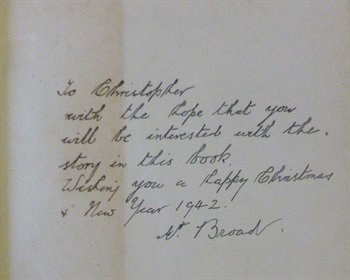 To Christopher
with the hope that you
will be interested with the.
story in this book.
Wishing you a happy Christmas
& New Year 1942.
Broad.